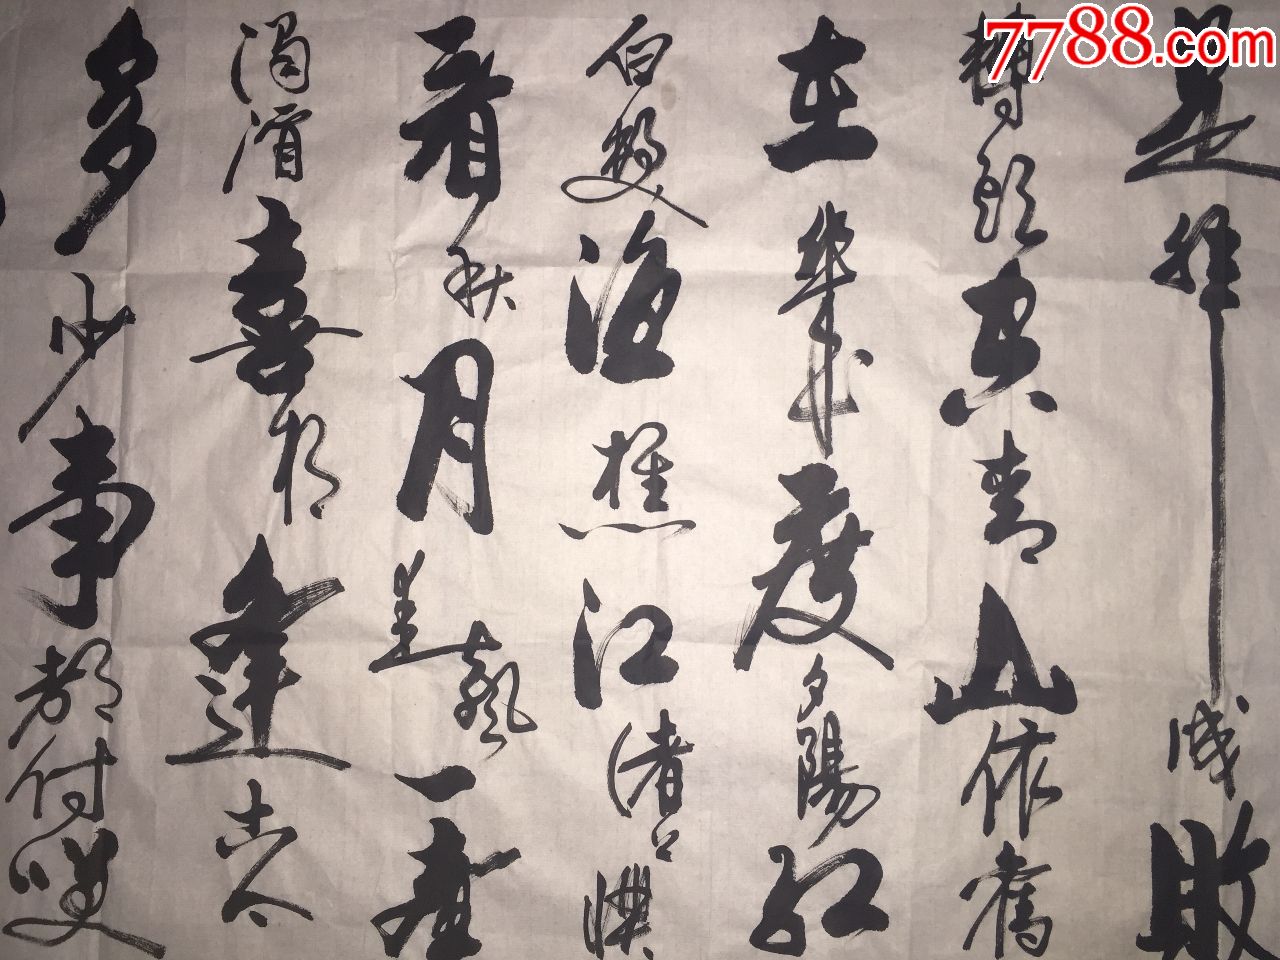 7788.com
是非成敗
轉頭空青山依舊
在幾度夕陽紅
白髮漁樵江渚上慣
看秋月春風一壺
濁酒喜相逢古今
多少事都付笑